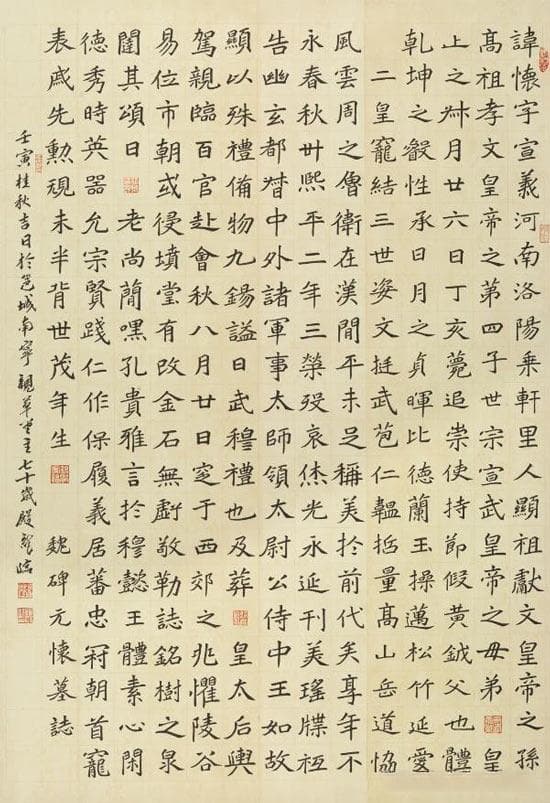 諱懷字宣義河南洛陽乘軒里人顯祖獻文皇帝之孫
高祖孝文皇帝之第四子世宗宣武皇帝之母弟 皇
上之叔月廿六日丁亥薨追崇使持節假黃鉞父也體
乾坤之叡性承日月之貞暉比德蘭玉操邁松竹延愛
二皇寵結三世姿文挺武苞仁韞括量高山岳道協
風雲周之魯衛在漢間平未足稱美於前代矣享年不
永春秋卅熙平二年三榮歿哀光永延刊美瑤牒
告幽玄都督中外諸軍事太師領太尉公侍中王如故
顯以殊禮備物九錫謚曰武穆禮也及葬 皇太后輿
駕親臨百官赴會秋八月廿日窆于西郊之兆懼陵谷
易位市朝或侵墳堂有改金石無虧敬勒誌銘樹之泉
闥其頌曰 老尚簡嘿孔貴雅言於穆懿王體素心閑
德秀時英器允宗賢踐仁作保履義居蕃忠冠朝首寵
表戚先勳規未半背世茂年生 魏碑元懷墓誌
壬寅桂秋吉日於邕城南寧草堂主七十歲殷臨